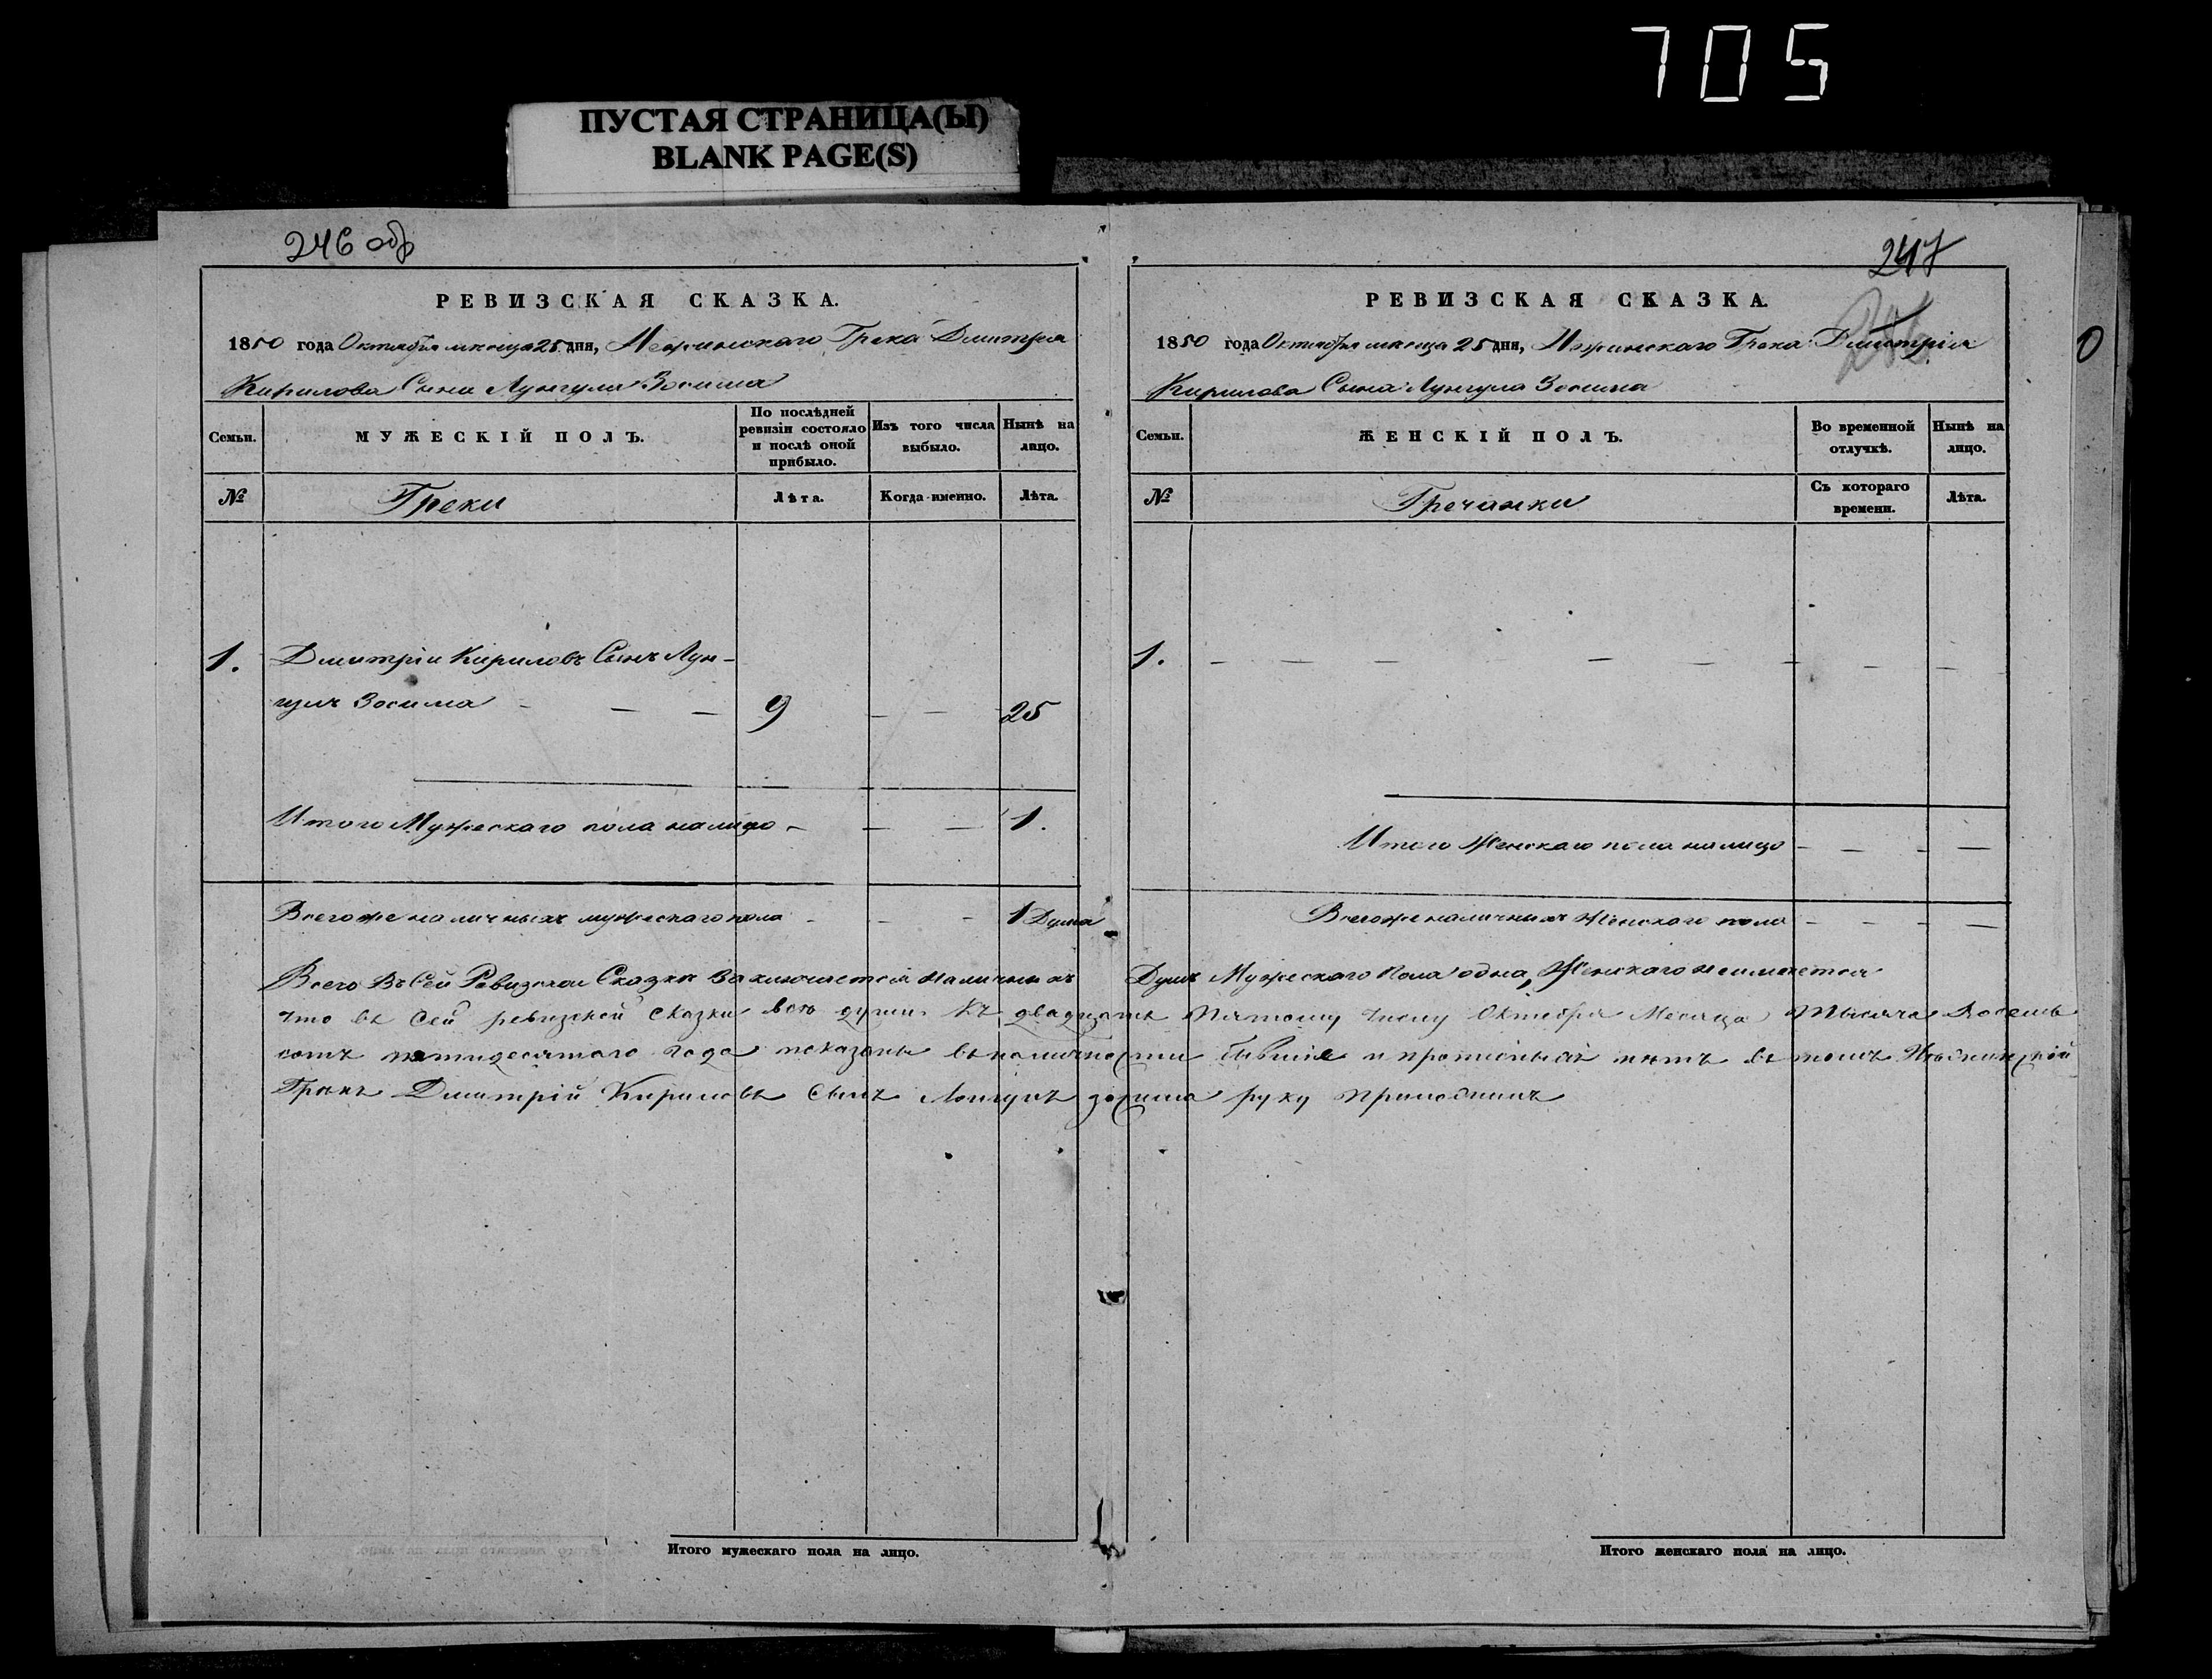 705
ПУСТАЯ СТРАНИЦА(Ы)
BLANK PAGE(S)
246 об
РЕВИЗСКАЯ СКАЗКА.
1850 года Октября месяца 25 дня, Нежинскаго Грека Дмитрия
Кирилова Сына Лунгула Зосима
Семьи.
МУЖЕСКІЙ ПОЛЪ.
По послѣдней ревизіи состояло и послѣ оной прибыло.
Изъ того числа выбыло.
Нынѣ на лицо.
№
Греки
Лѣта.
Когда именно.
Лѣта.
1. Дмитрій Кириловъ Сынъ Лун-
гулъ Зосима - — — 9 — — 25
Итого Мужескаго пола налицо — — — 1.
Всего же наличныхъ мужескаго пола - - - 1 Душа
247
РЕВИЗСКАЯ СКАЗКА.
1850 года Октября месяца 25 дня, Нежинскаго Грека Дмитрія
Кирилова Сына Лунгула Зосима
0
Семьи.
ЖЕНСКІЙ ПОЛЪ.
Во временной отлучкѣ.
Нынѣ на лицо.
№
Гречанки
Съ котораго времени.
Лѣта.
1. — — — — — — — —
Итого Женскаго пола налицо — — - —
Всего же наличныхъ Женскаго пола — — - —
Всего Въ Сей Ревизской Сказке Заключается Наличныхъ Душъ Мужескаго Пола одна, Женскаго неимеется
что въ Сей ревизской Сказки все души къ двадцать Пятому Числу Октября Месяца Тысяча Восемь
сотъ пятидесятого года показаны въ наличности бывшие и прописныхъ нетъ въ томъ Неженский
Грекъ Дмитрій Кириловъ Сынъ Лонгулъ зосима руку Приложилъ
Итого мужескаго пола на лицо.
Итого женскаго пола на лицо.